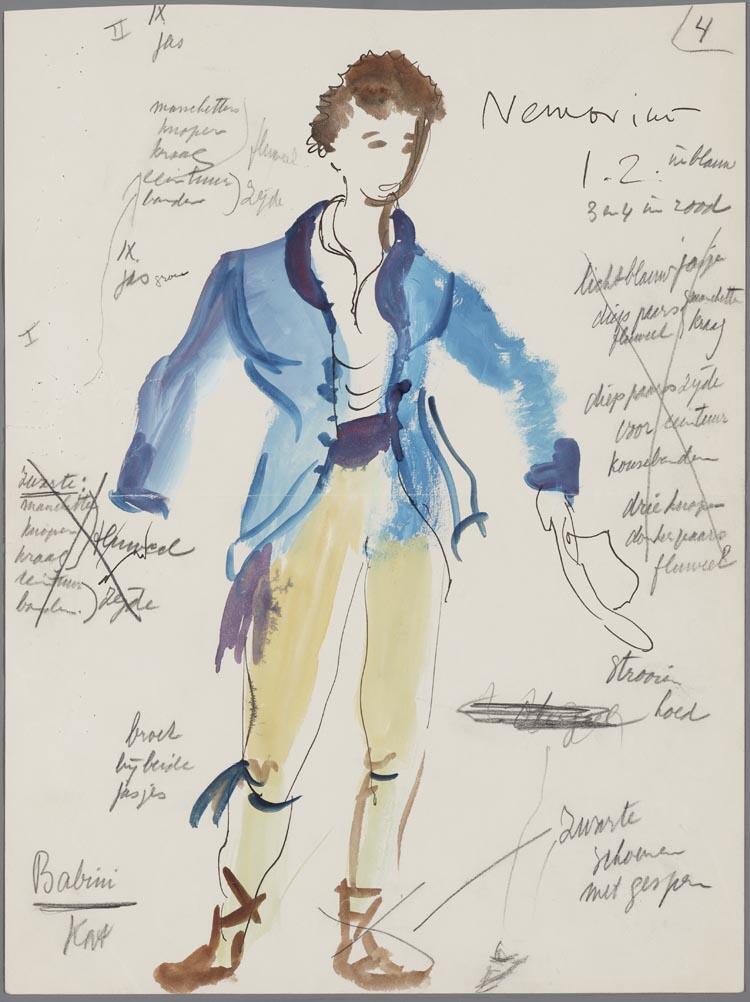 II
IX
jas
4
manchetten
knopen
kraag
fluweel
ceintuur
banden
Zijde
Nemorino
1.2. in blauw
3 en 4 in rood
IX.
jas groen
I
licht blauw jasje
diep paars manchetten
fluweel kraag
diep paars zijde
voor ceintuur
kousebanden
drie knopen
donker paars
fluweel
Zwarte:
manchetten
knopen
kraag
fluweel
ceintuur
banden.
Zijde
strooien
hoed
broek
bij beide
jasjes
Zwarte
schoenen
met gespen
Babini